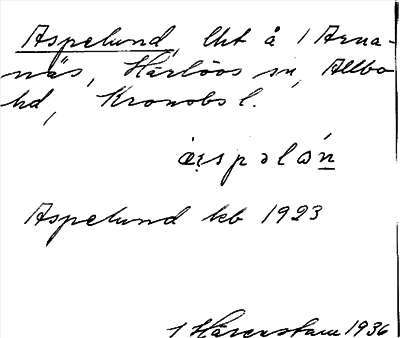 Aspelund, lht å 1 Arna-
näs, Härlövs sn, Allbo
hd, Kronobs l.
aspəlón
Aspelund kb 1923
1 Härenstam 1936